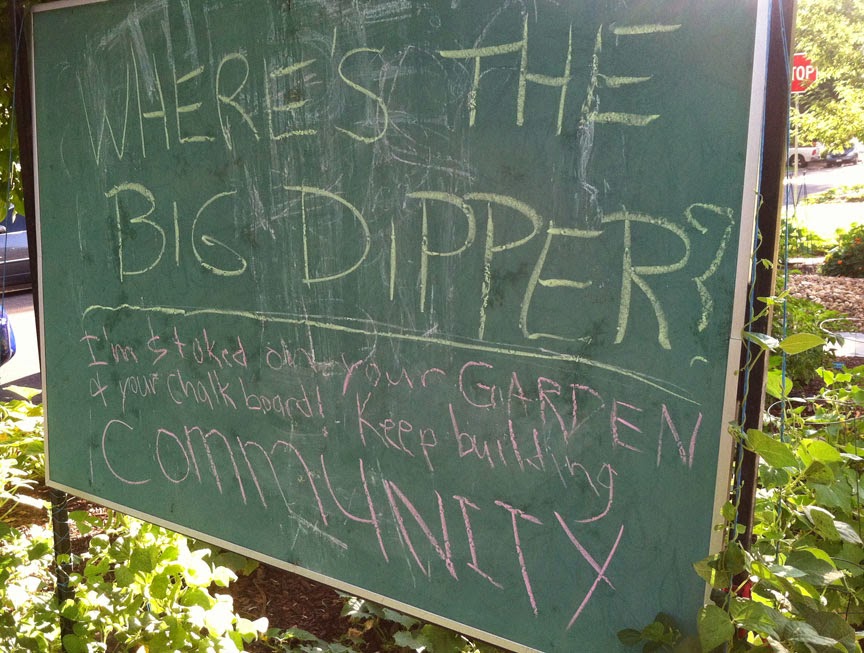 WHERE'S THE
BIG DIPPER?
I'm stoked on your GARDEN
& your chalkboard! Keep building
COMMUNITY
TOP